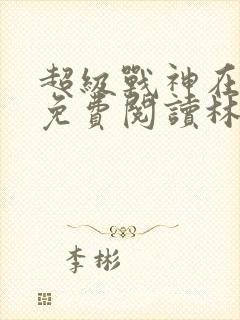 超級戰神在
免費閱讀林
李彬